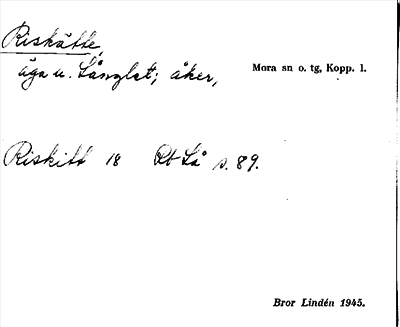 Riskätte,
äga u. Långlet; åker,
Mora sn o. tg, Kopp. l.
Riskitt 18 Rb Lå s. 89.
Bror Lindén 1945.